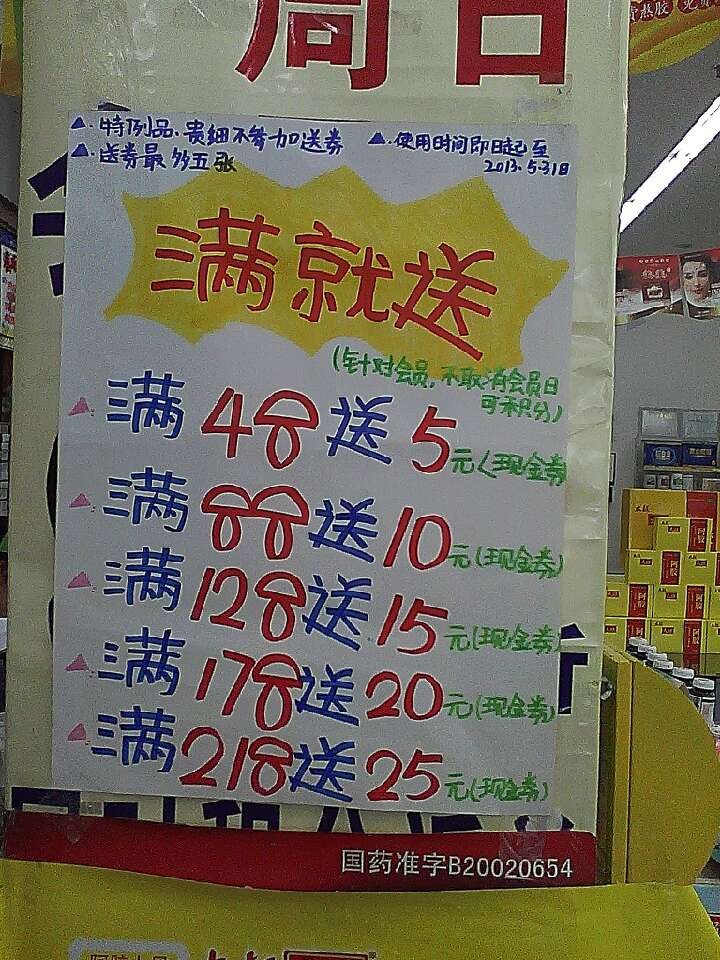 ▲.特例品、贵细不参加送券
▲.使用时间即日起至
2013.5.31日
▲.送券最多五张
满就送
(针对会员,不取消会员日
可积分)
满48送5元(现金券
满88送10元(现金券)
满128送15元(现金券
满178送20元(现金券)
满218送25元(现金券)
国药准字B20020654
阿胶